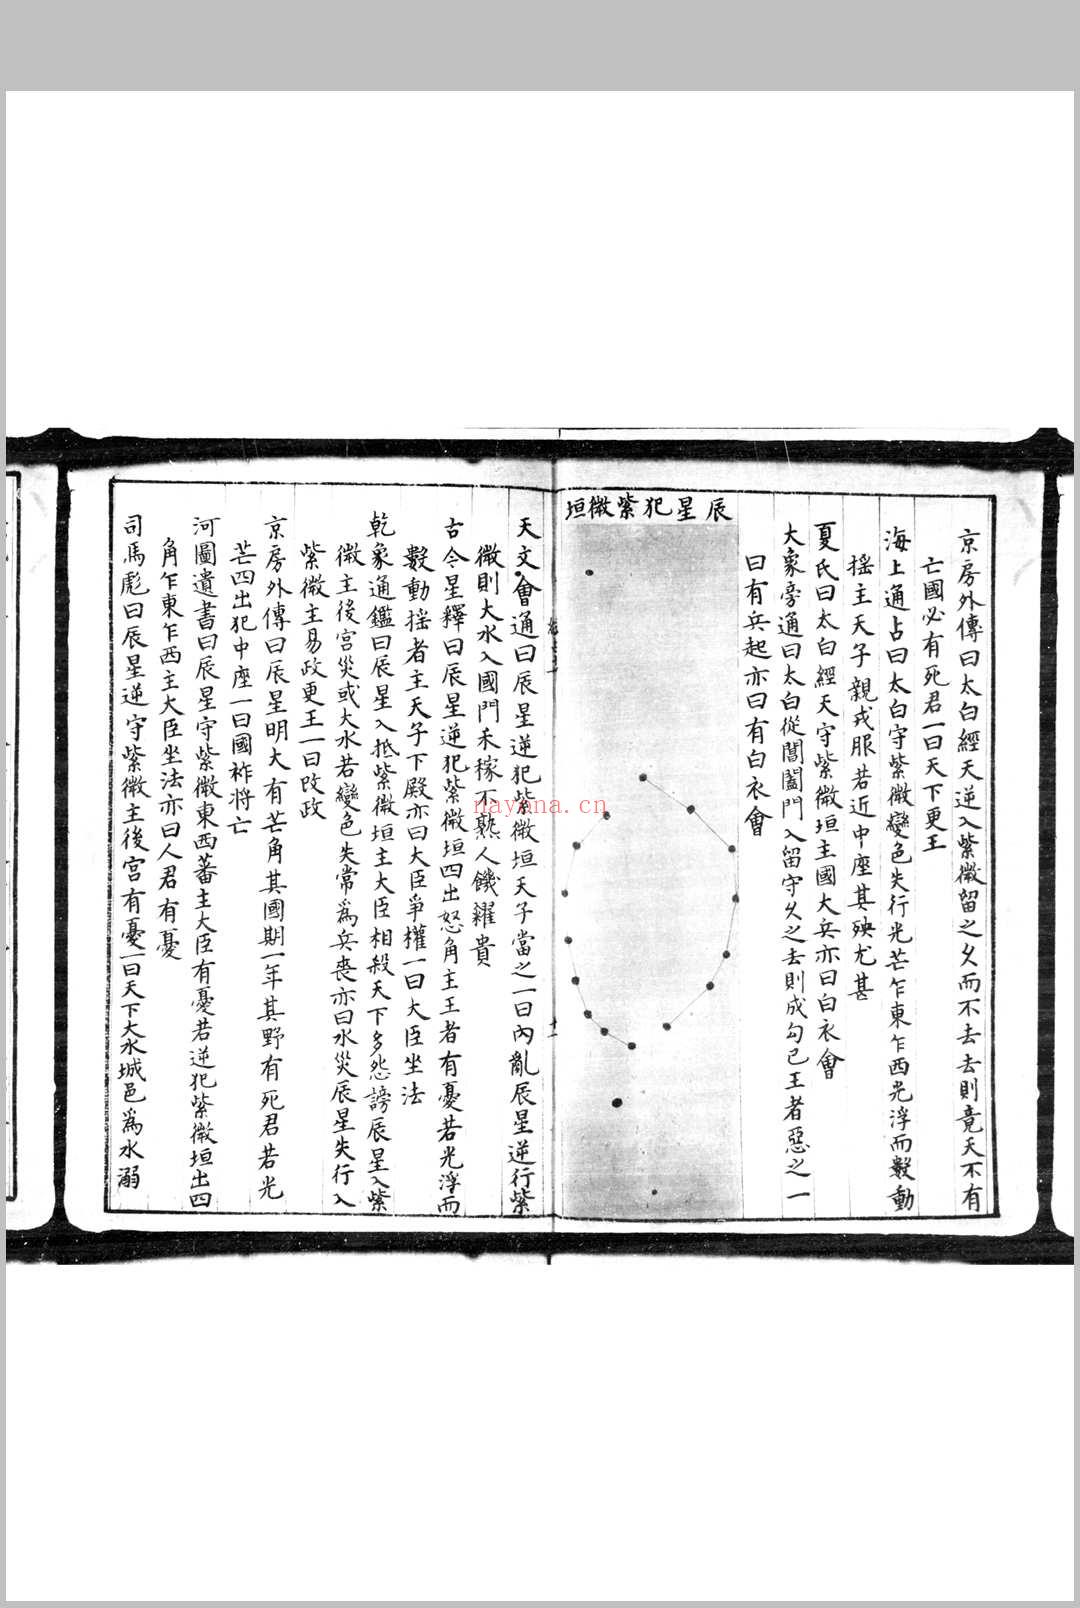 京房外傳曰太白經天逆入紫微留之久而不去去則竟天不有
亡國必有死君一曰天下更王
海上通占曰太白守紫微變色失行光芒乍東乍西光浮而數動
搖主天子親戎服若近中座其殃尤甚
夏氏曰太白經天守紫微垣主國大兵亦曰白衣會
大象旁通曰太白從閶闔門入留守久之去則成勾已王者惡之一
曰有兵起亦曰有白衣會
辰星犯紫微垣
天文會通曰辰星逆犯紫微垣天子當之一曰內亂辰星逆行紫
微則大水入國門禾稼不熟人饑糴貴
古今星釋曰辰星逆犯紫微垣四出怒角主王者有憂若光浮而
數動搖者主天子下殿亦曰大臣爭權一曰大臣坐法
乾象通鑑曰辰星入抵紫微垣主大臣相殺天下多怨謗辰星入紫
微主後宮災或大水若變色失常爲兵喪亦曰水災辰星失行入
紫微主易政更王一曰改政
京房外傳曰辰星明大有芒角其國期一年其野有死君若光
芒四出犯中座一曰國祚將亡
河圖遺書曰辰星守紫微東西蕃主大臣有憂若逆犯紫微垣出四
角乍東乍西主大臣坐法亦曰人君有憂
司馬彪曰辰星逆守紫微主後宮有憂一曰天下大水城邑爲水溺
十一
nayona.cn